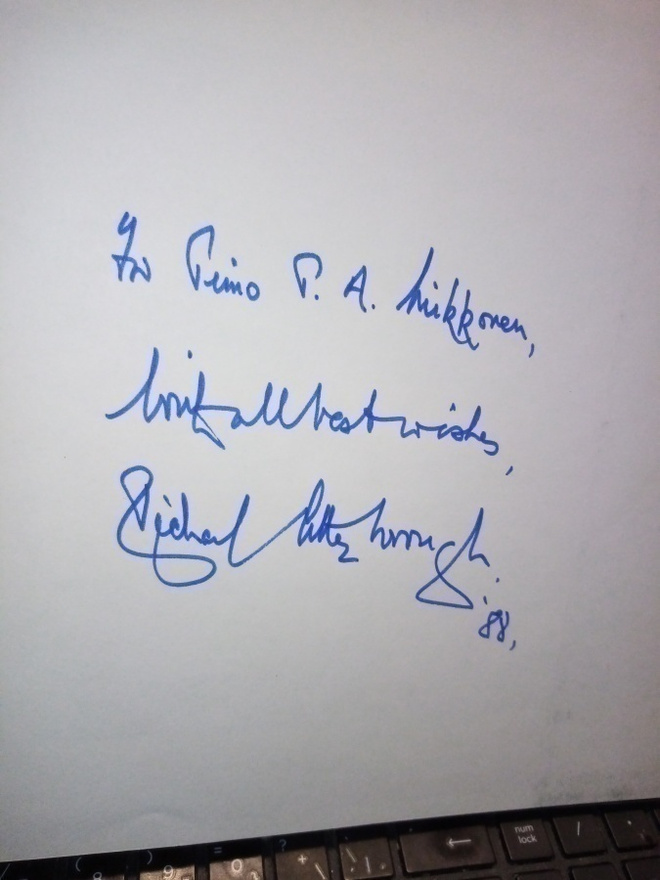 For Timo T. A. Mikkonen,
with all best wishes,
Richard Attenborough.
'88,
) = ?
8 9 0 + \ ← num lock / *